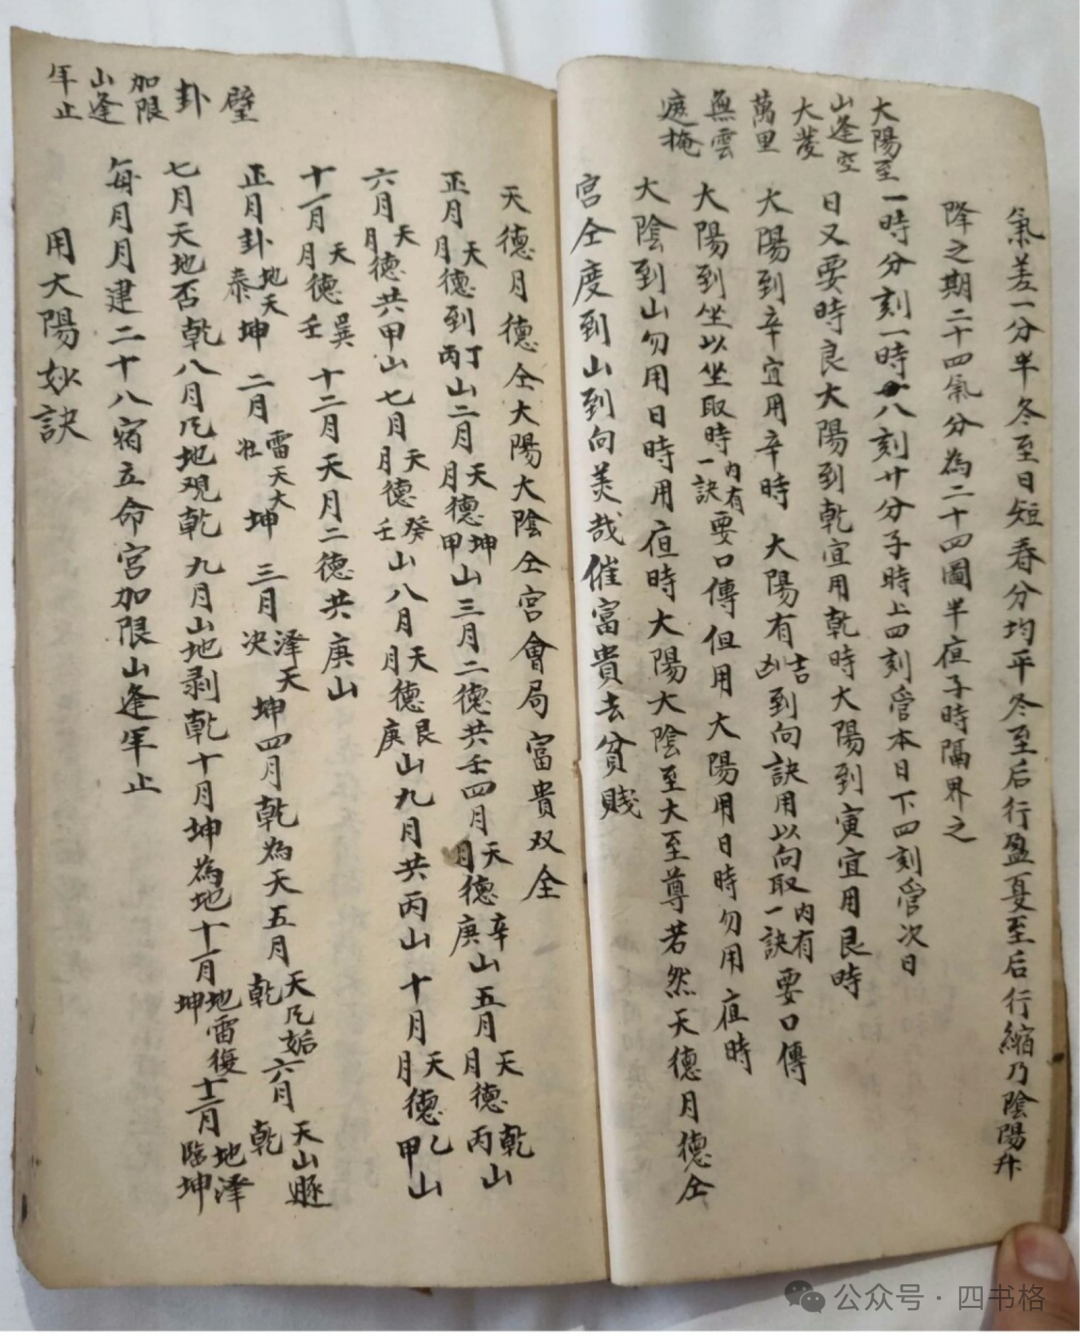 氣差一分半冬至日短春分均平冬至后行盈夏至后行縮乃陰陽升
降之期二十四氣分為二十四圖半夜子時隔界之
大陽至
山逢空
大發
萬里
無雲
遮掩
一時分刻一時八刻廿分子時上四刻管本日下四刻管次日
日又要時良大陽到乾宜用乾時大陽到寅宜用艮時
大陽到辛宜用辛時 大陽有吉凶到向訣用以向取內有一訣要口傳
大陽到坐以坐取時內有一訣要口傳但用大陽用日時勿用夜時
大陰到山勿用日時用夜時大陽大陰至大至尊若然天德月德仝
宮仝度到山到向美哉催富貴去貧賤
天德月德仝大陽大陰仝宮會局富貴双全
正月天月德到丁丙山二月天月德坤甲山三月二德共壬四月天月德辛庚山五月天月德乾丙山
六月天月德共甲山七月天月德癸壬山八月天月德艮庚山九月共丙山十月天月德乙甲山
十一月天月德巽壬 十二月天月二德共庚山
正月卦地天泰坤 二月雷天大壯坤 三月澤天決坤四月乾為天五月天風姤乾六月天山遯乾
七月天地否乾八月風地观乾九月山地剥乾十月坤為地十一月地雷復坤十二月地澤臨坤
每月月建二十八宿立命宮加限山逢年止
用大陽妙訣
璧
卦
加限
山逢
年止
公众号·四书格